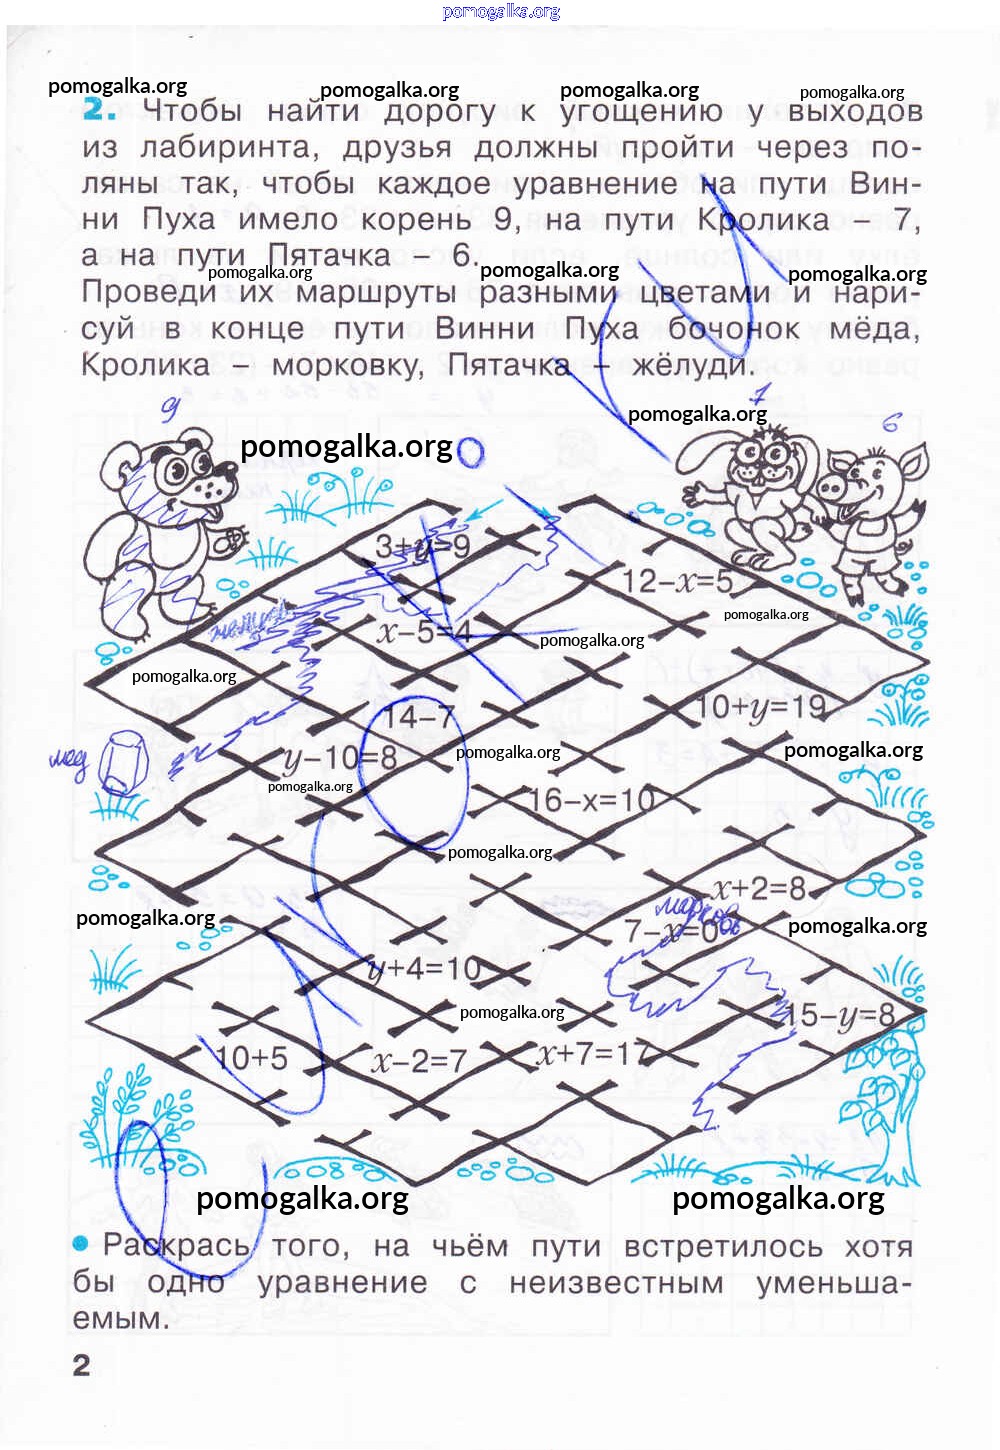 pomogalka.org
pomogalka.org pomogalka.org pomogalka.org pomogalka.org
2. Чтобы найти дорогу к угощению у выходов
из лабиринта, друзья должны пройти через по-
ляны так, чтобы каждое уравнение на пути Вин-
ни Пуха имело корень 9, на пути Кролика – 7,
а на пути Пятачка – 6.
pomogalka.org pomogalka.org pomogalka.org
Проведи их маршруты разными цветами и нари-
суй в конце пути Винни Пуха бочонок мёда,
Кролика – морковку, Пятачка – жёлуди.
9 7 6
pomogalka.org
pomogalka.org
3+y=9
12–x=5
pomogalka.org
x–5=4
pomogalka.org
pomogalka.org
14–7
10+y=19
y–10=8
pomogalka.org
pomogalka.org
мед
pomogalka.org
16–x=10
pomogalka.org
x+2=8
морковь
pomogalka.org
7–x=0
pomogalka.org
y+4=10
pomogalka.org
15–y=8
10+5
x–2=7
x+7=17
pomogalka.org pomogalka.org
Раскрась того, на чьём пути встретилось хотя
бы одно уравнение с неизвестным уменьша-
емым.
2